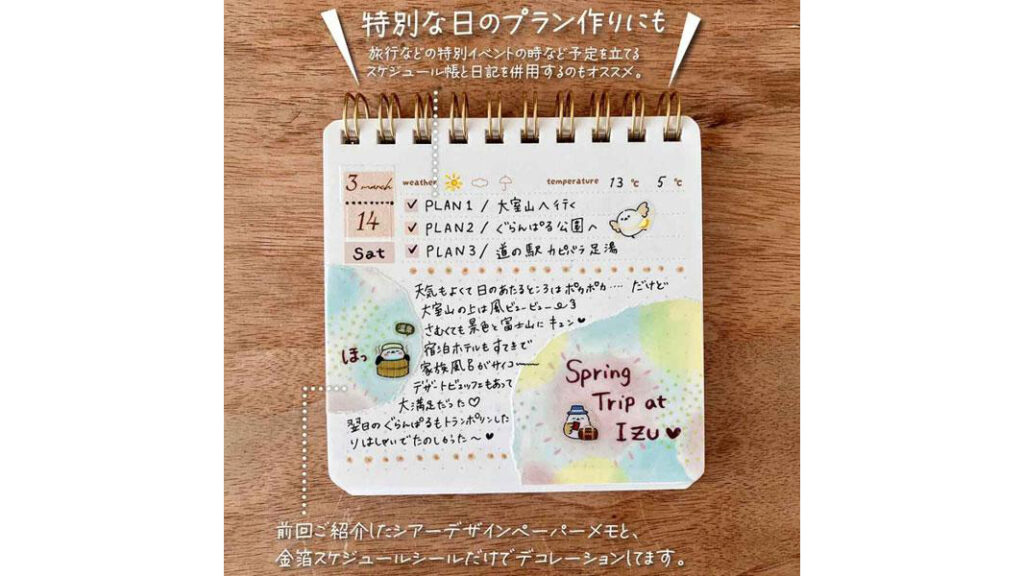 特別な日のプラン作りにも
旅行などの特別イベントの時など予定を立てる
スケジュール帳と日記を併用するのもオススメ。
3 march weather temperature 13 ℃ 5 ℃
14
Sat
PLAN1 / 大室山へ行く
PLAN2 / ぐらんぱる公園へ
PLAN3 / 道の駅 カピバラ足湯
天気もよくて日のあたるところはポカポカ…. だけど
大室山の上は風ビュービュー
さむくても景色と富士山にキュン♥
宿泊ホテルもすてきで
家族風呂がサイコー
デザートビュッフェもあって
大満足だった♡
翌日のぐらんぱるもトランポリンした
りはしゃいでたのしかった〜♥
ほっ
温泉
Spring
Trip at
IZU♥
前回ご紹介したシアーデザインペーパーメモと、
金箔スケジュールシールだけでデコレーションしてます。